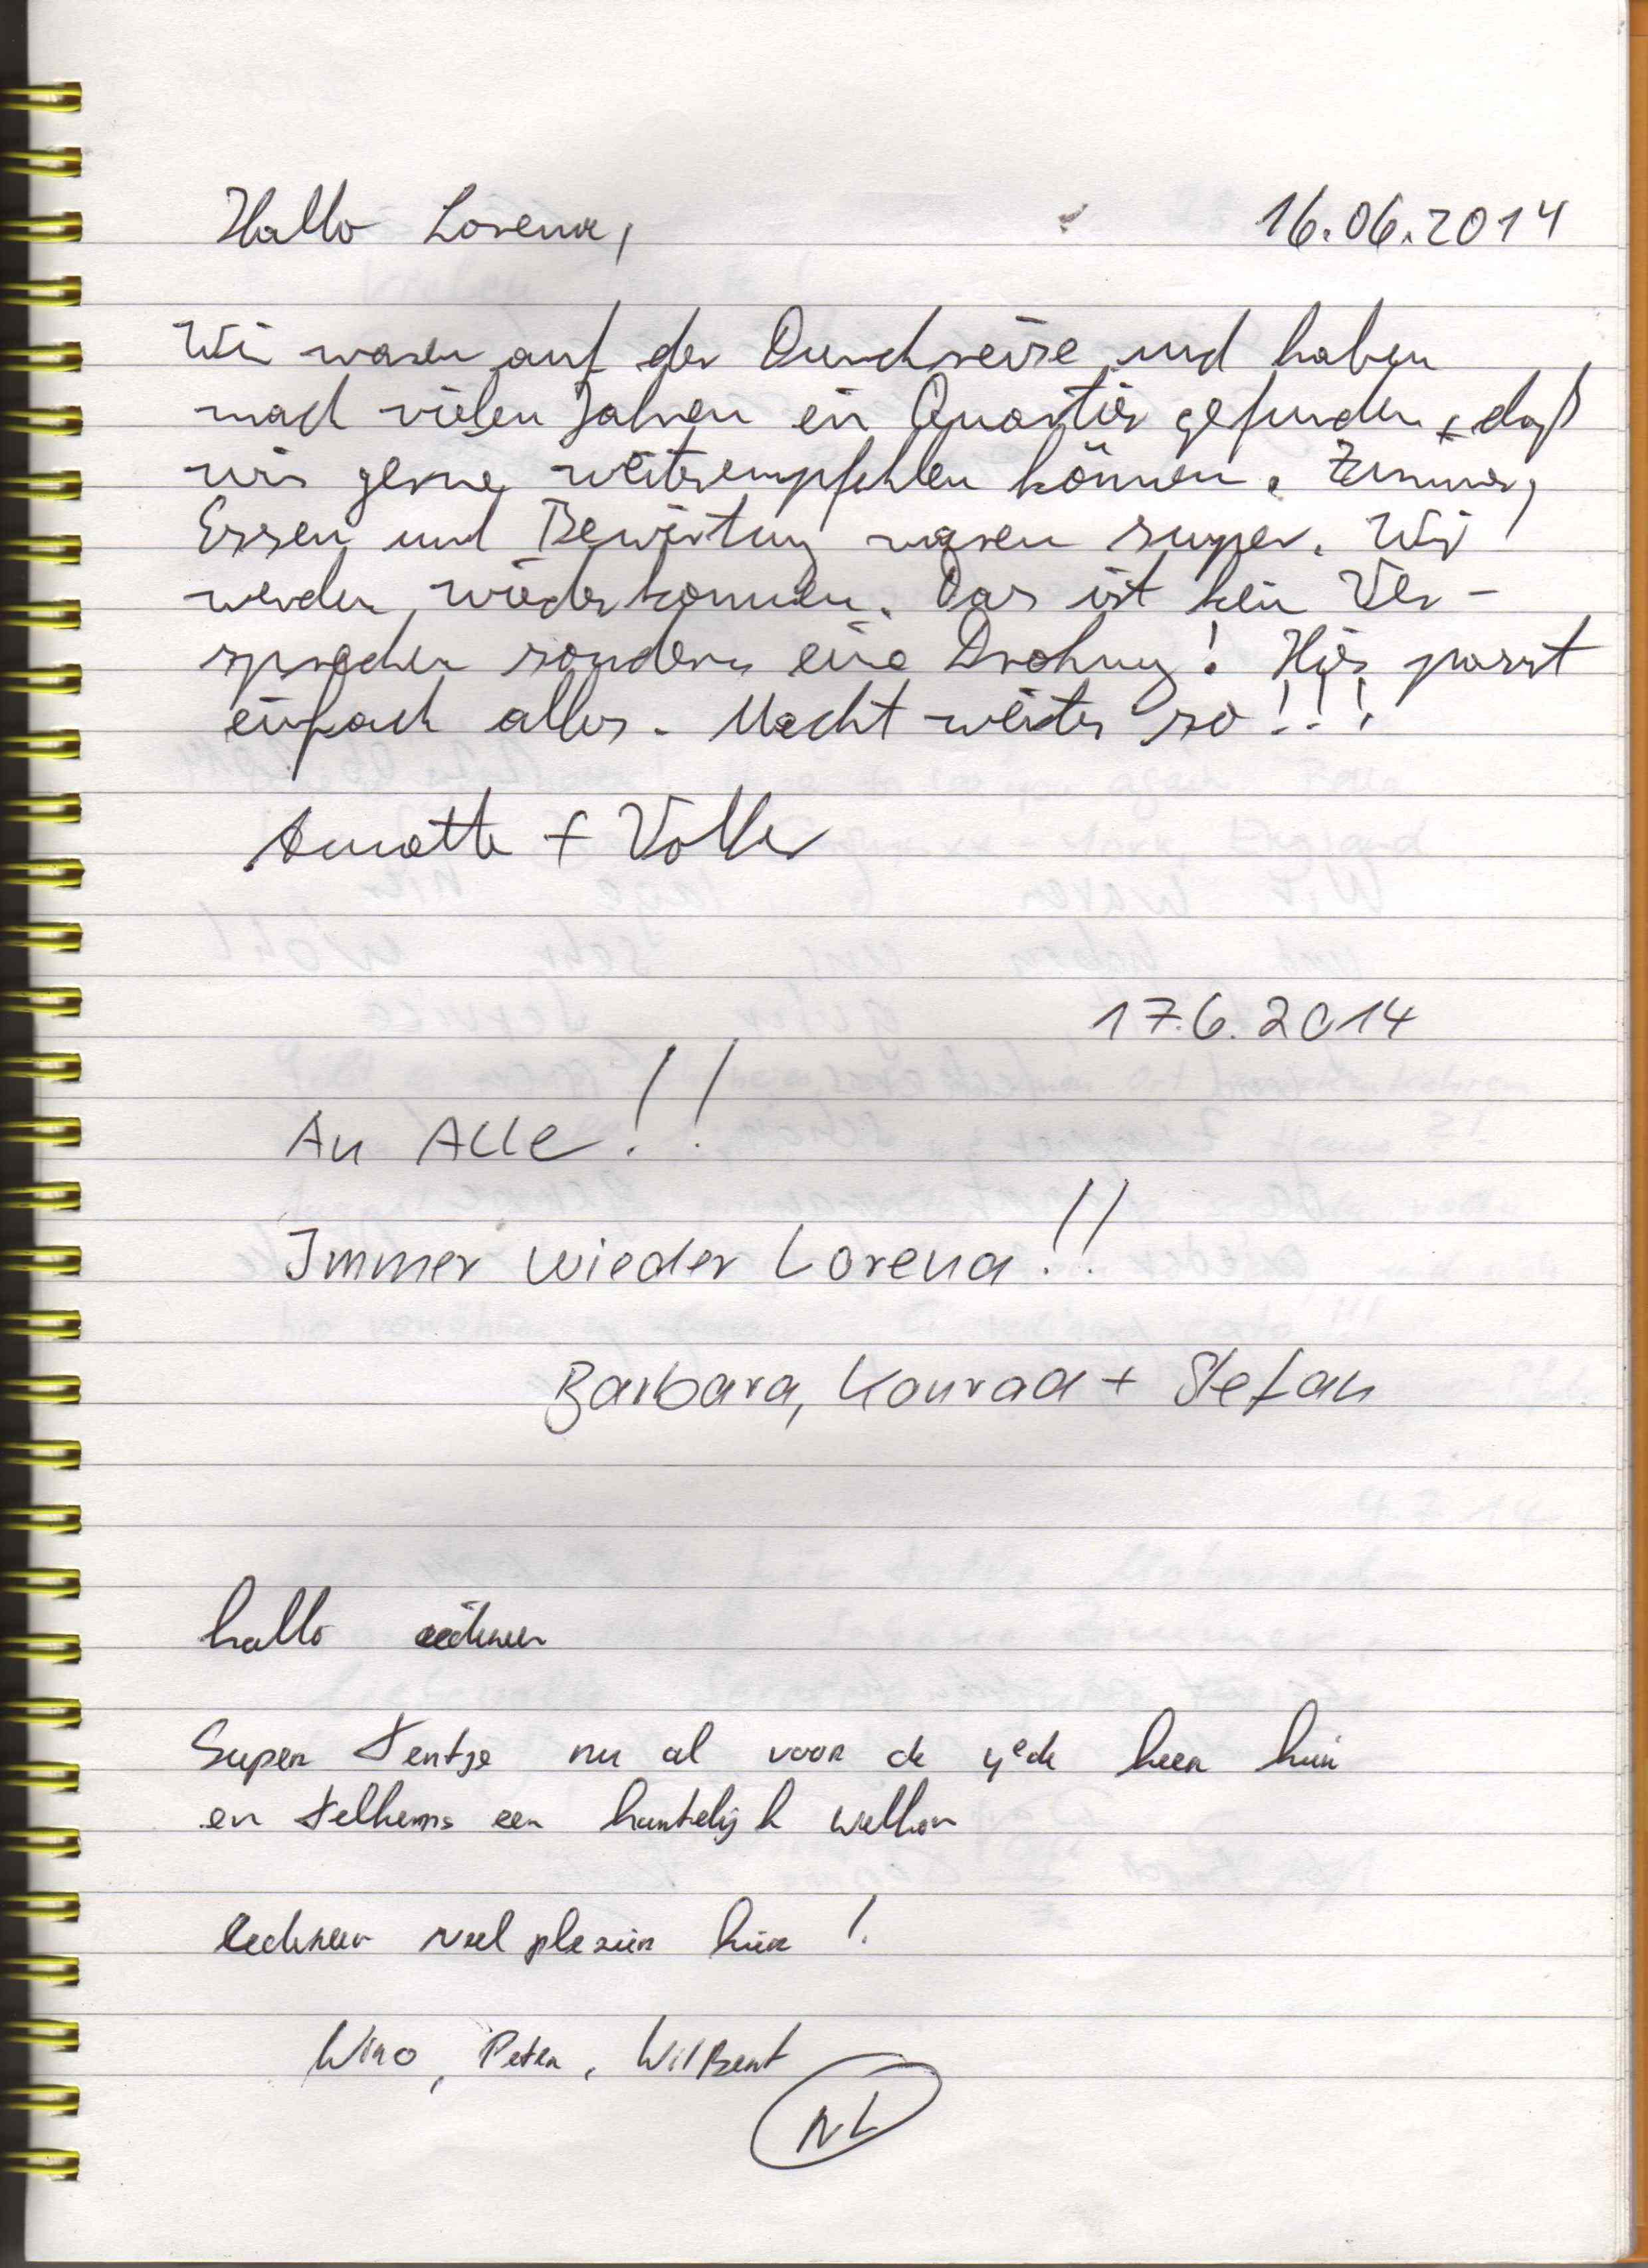 Hallo Lorena, 16.06.2014
Wir waren auf der Durchreise und haben
nach vielen Jahren ein Quartier gefunden, daß
wir gerne weiterempfehlen können. Zimmer,
Essen und Bewirtung waren super. Wir
werden wiederkommen. Das ist kein Ver-
sprechen sondern eine Drohung! Hier passt
einfach alles. Macht weiter so!!!
Annette + Volker
17.6.2014
An Alle!!
Immer wieder Lorena!!
Barbara, Konrad + Stefan
hallo
Super tentje nu al voor de 4e de keer hier
en telkens een hartelijk welkom
Iedereen veel plezier hier!
Wino, Peter, Wilbert
NL